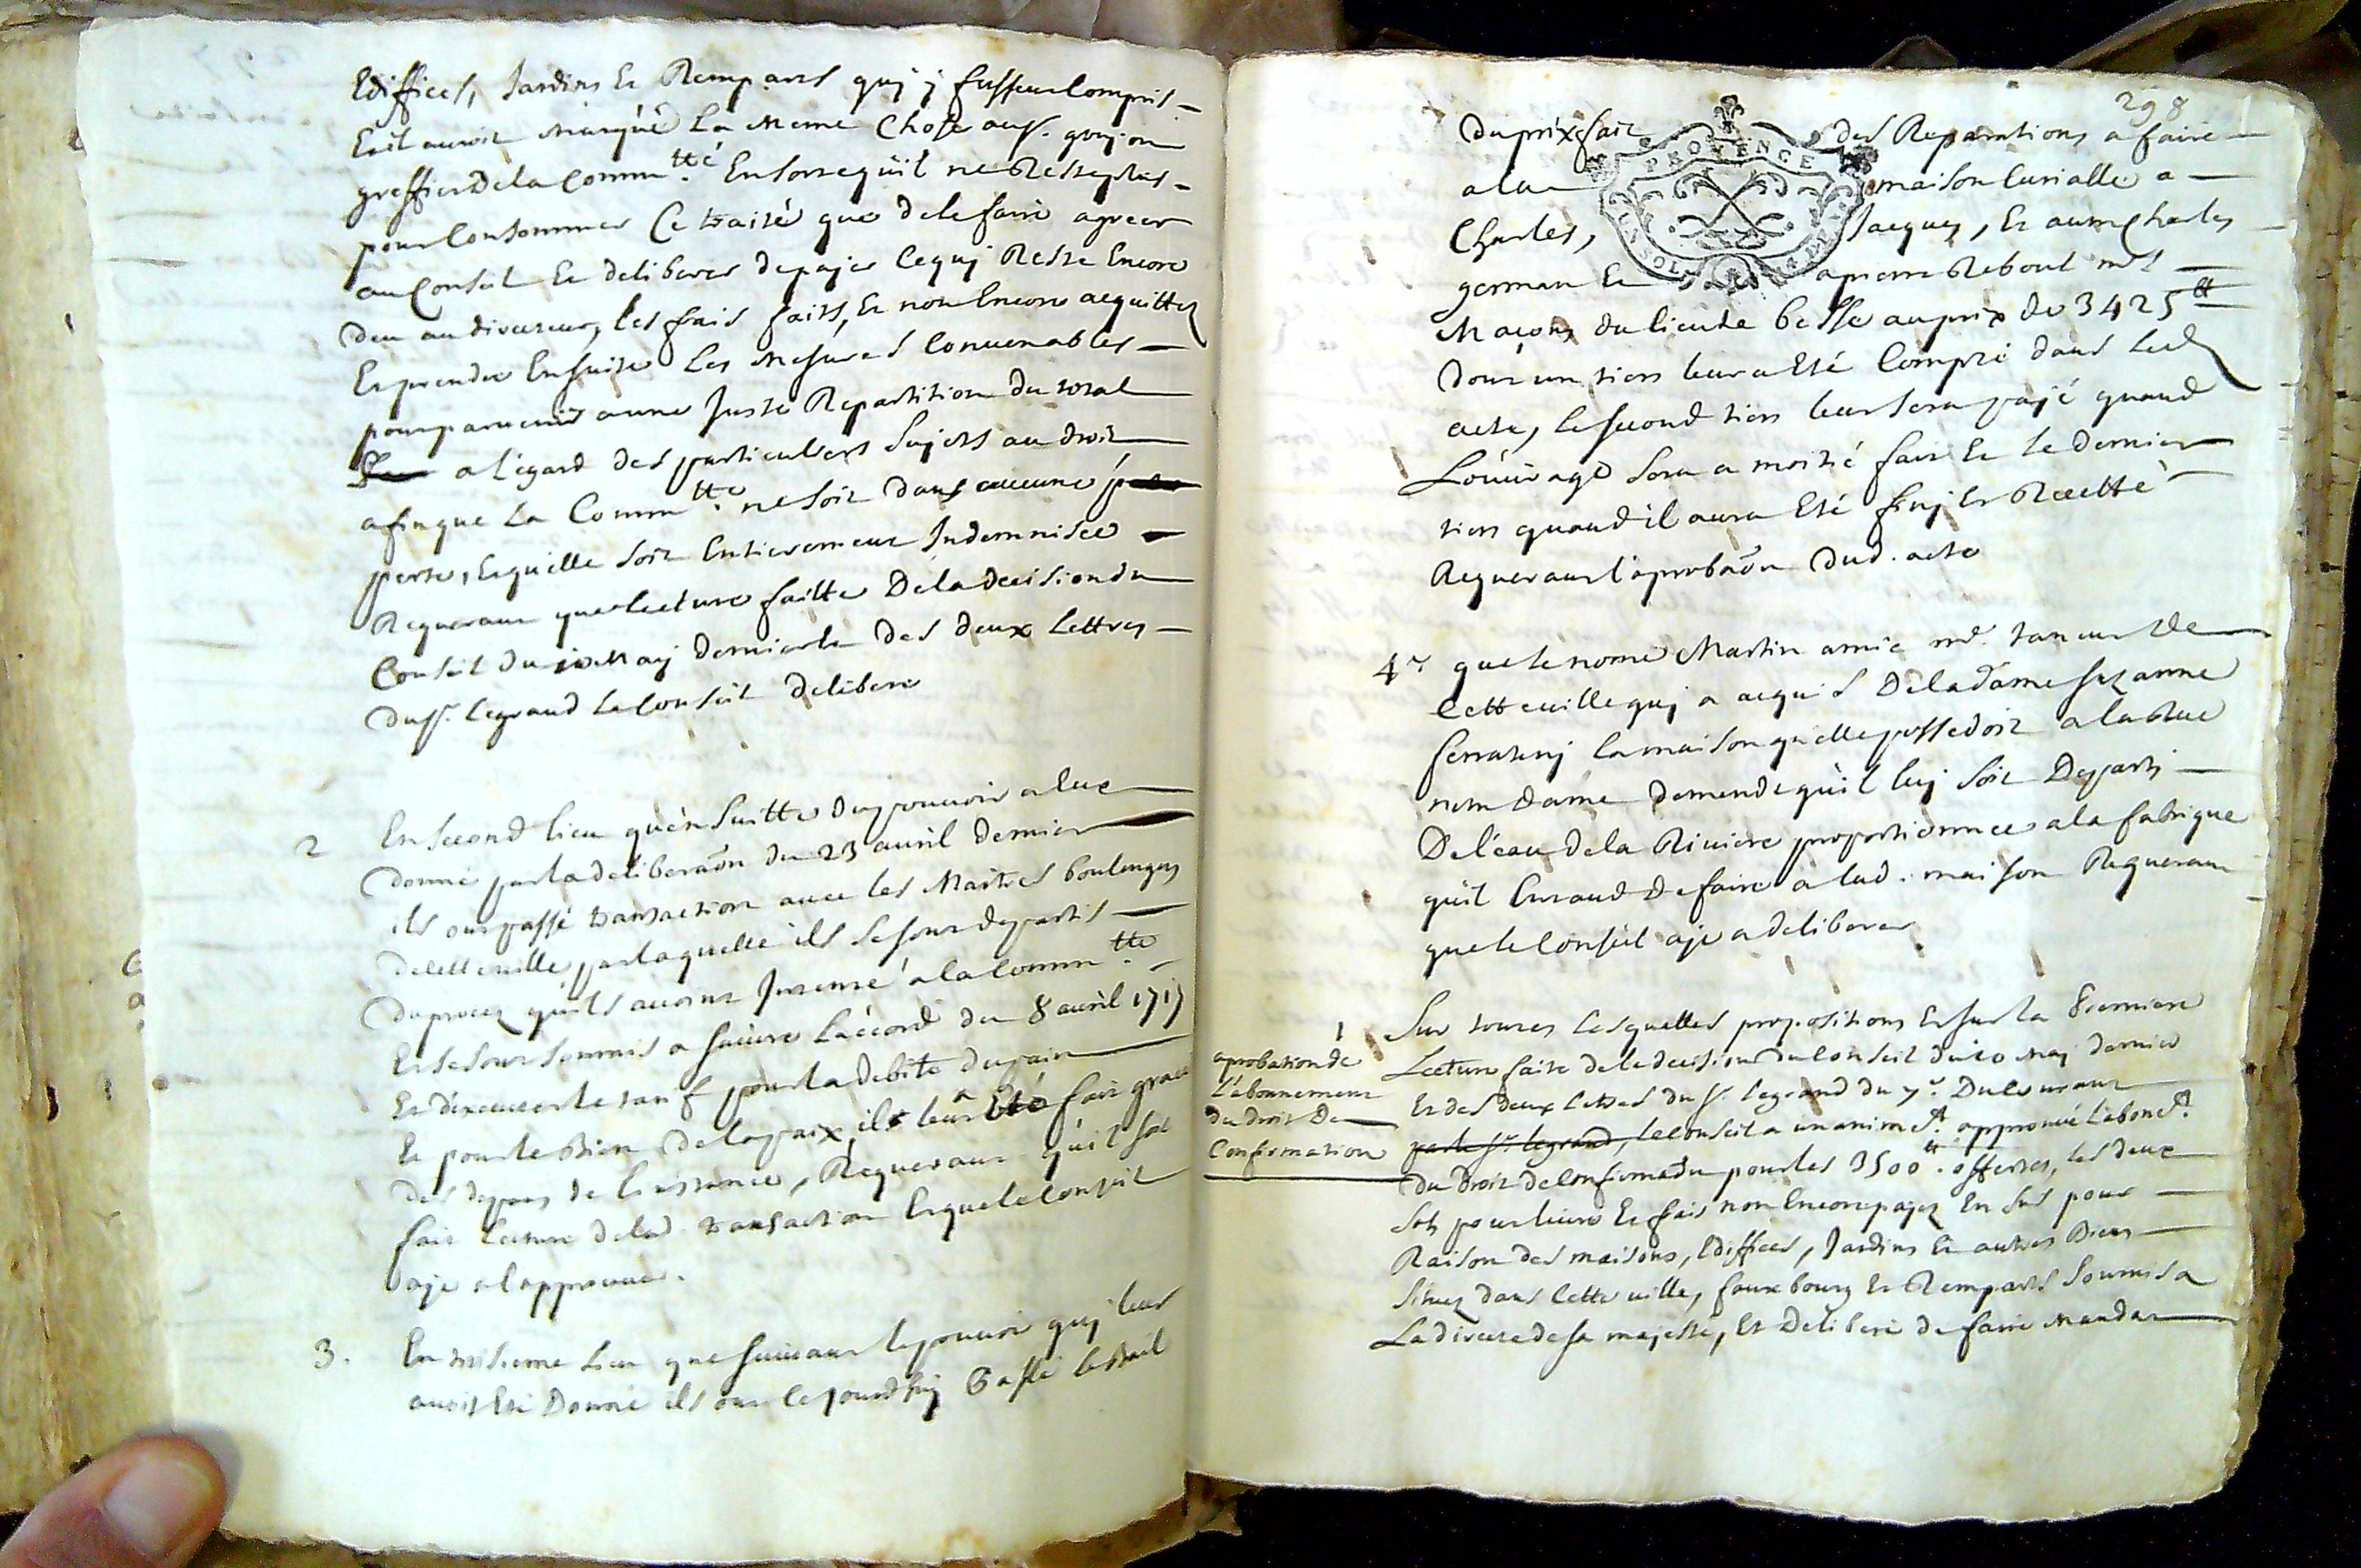 Ediffices, Jardins Et Remparts quj j fussent Compris
Et il auroit marqué La meme Chose au sr. goujon
greffier de la Comm.tté En sorte qu'il ne Reste plus
pour Consommer Ce traité que de le faire agreer
au Conseil Et deliberer de pajer Ce quj Reste Encore
deu au directeur, les frais faits, Et non Encore acquittez
Et prendre Ensuitte Les mesures Convenables
pour parvenir a une Juste Repartition du total
a l'égard des particuliers Sujets au droit
afin que La Comm.tté ne soit dans aucune
perte, Et qu'elle soit Entierement Indemnisée
Requerant que lecture faitte De la decision du
Conseil du 10 Maj dernier Et des deux Lettres
du sr. Legrand Le Conseil delibere
2 En second lieu qu'en suitte du pouvoir a eux
donné par la deliberaõn du 23 avril dernier
ils ont passé transaction avec les Maitres boulengers
de cette ville, par laquelle ils se sont departis
du procez qu'ils avoient Intenté a la Comm.tté
Et se sont soumis a suivre L'accord du 8 avril 1717
Et d'executer le tarif pour la debite du pain
Et pour le Bien de la paix, ils leur Eté fait grace
des depens de l'instance, Requerant qu'il soit
fait lecture de lad. transaction Et que le Conseil
aje a l'approuver.
3. En troisieme Lieu que suivant le pouvoir quj leur
avoit Eté Donné ils ont ce jourd'huj Passé le Bail
298
PROVENCE
du prix fait des Reparations a faire
a la maison Curialle a
Charles, Jacques, Et autre Charles
german Et a pierre Reboul mes
Maçons du lieu de besse au prix de 3425 tt
dont un tiers leur a Eté Compté dans led.
acte, le second tiers leur sera pajé quand
L'ouvrage sera a moitié fait Et le dernier
tiers quand il aura Eté finj Et Recetté
Requerant l'aprobaõn dud. acte
4 que le nomé Martin amic md. taneur de
Cette ville quj a acquis De la dame suzanne
ferratenj la maison qu'elle possedoit a la Rue
notre dame demande qu'il luj soit Departj
De l'eau de la Riviere proportionnée a la fabrique
qu'il Entend De faire a lad. maison Requerant
que le Conseil aje a deliberer
1 Sur toutes Lesquelles propositions Et sur la Premiere
aprobation de
L'abonnement
du droit De
Confirmation
Lecture faite de la decision du Conseil du 10 Maj dernier
Et des deux Lettres du sr. Legrand du 7e. Du Courant
par le sr. legrand, le Conseil a unanimet. approuvé L'abonet.
du droit de Confirmaõn pour les 3500 tt. offertes, les deux
sols pour livre Et frais non Encore pajez En sus pour
Raison des maisons, Ediffices, Jardins Et autres Biens
Situez dans Cette ville, fauxbourg Et Remparts soumis a
La directe de sa majesté, Et Deliberé de faire mandat